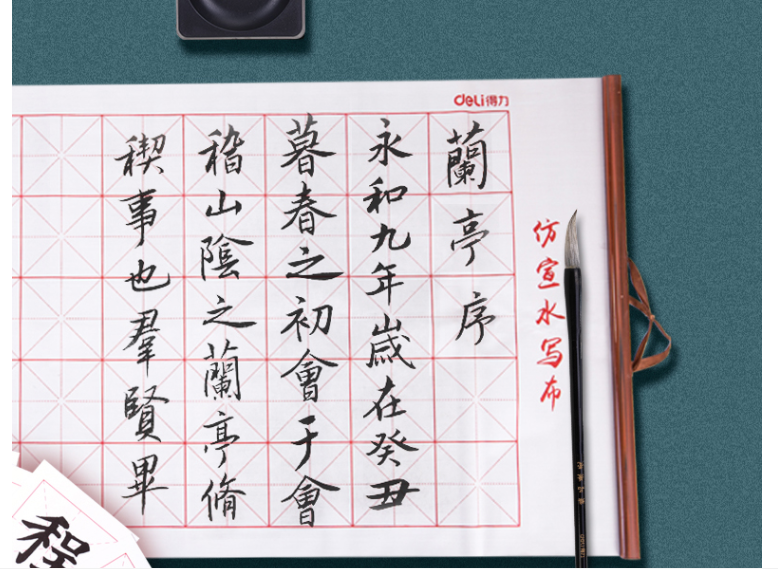 deli得力
蘭亭序
永和九年歲在癸丑
暮春之初會于會
稽山陰之蘭亭脩
禊事也羣賢畢
仿宣水写布
程